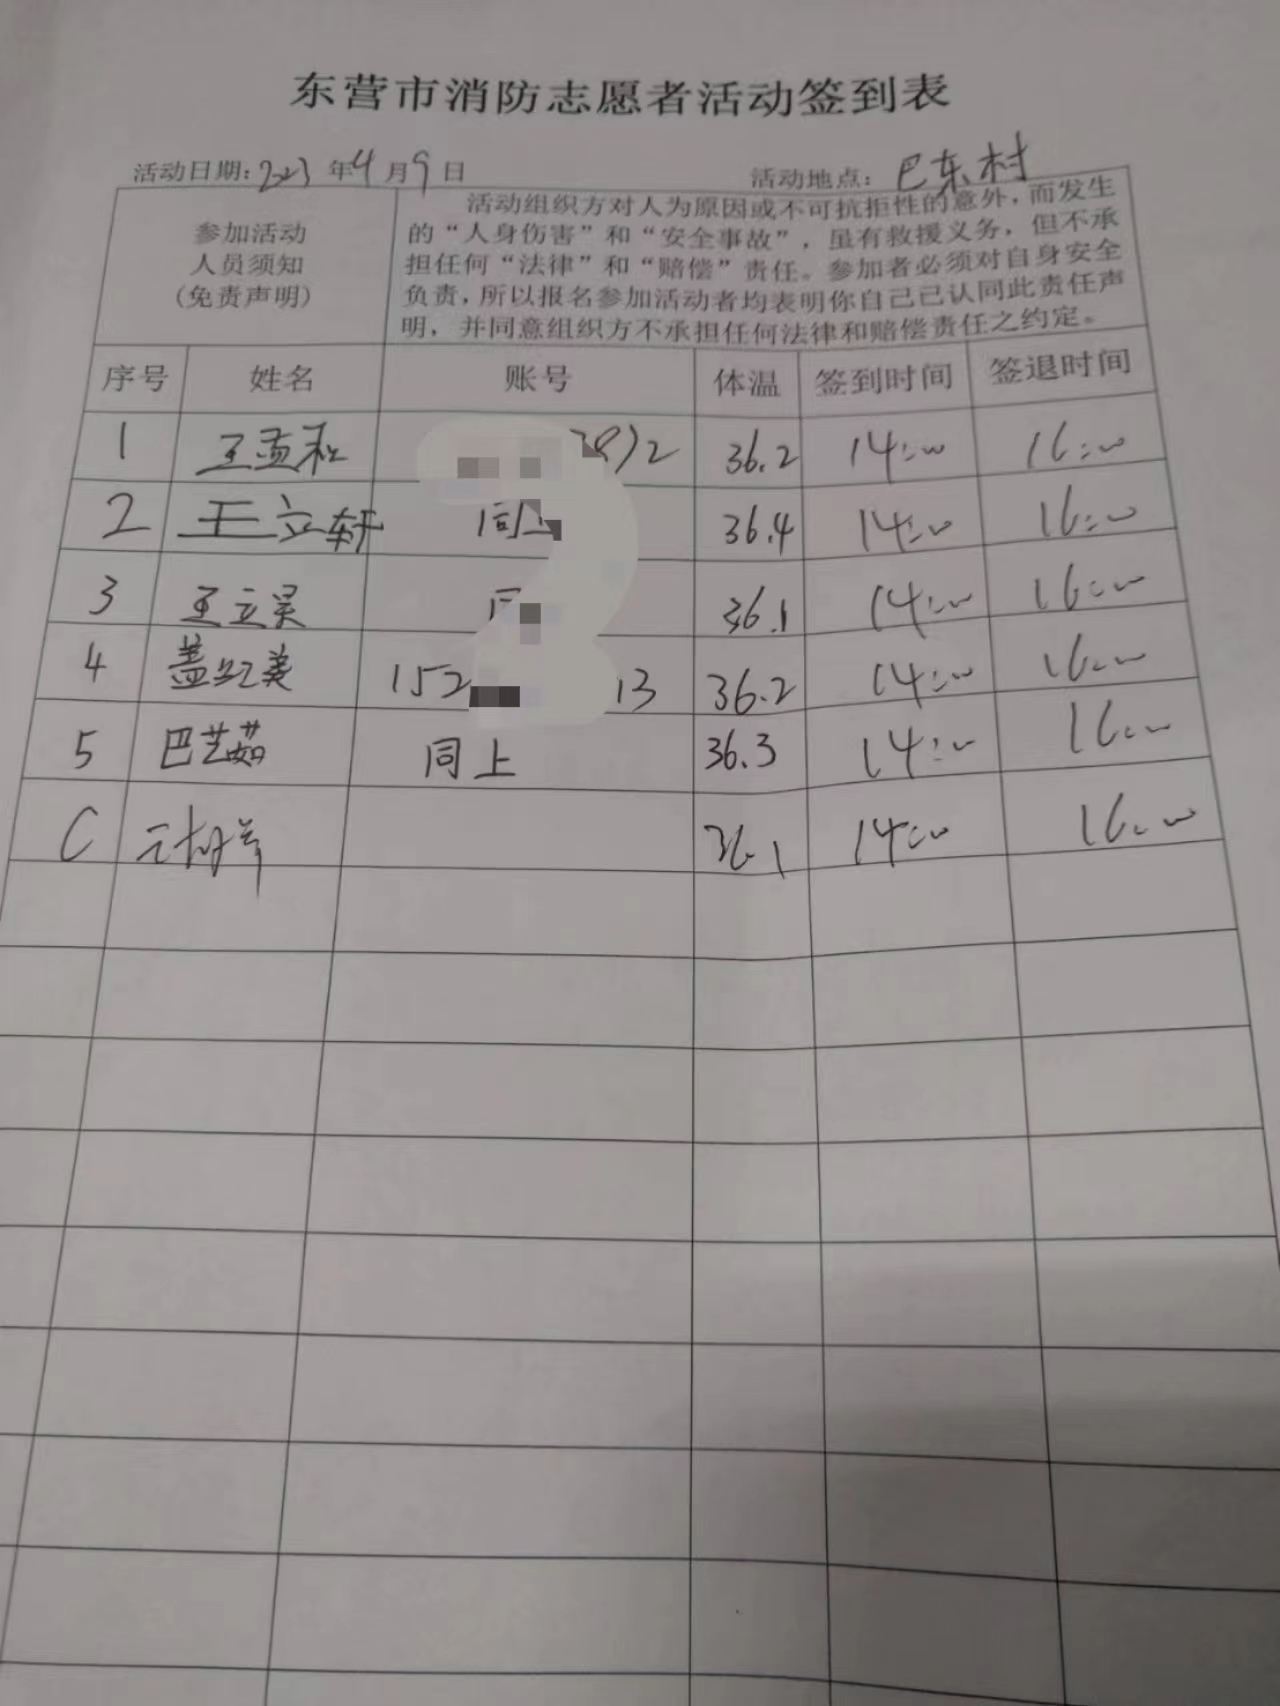 东营市消防志愿者活动签到表
活动日期:2023年4月9日 活动地点:巴东村
参加活动
人员须知
(免责声明)
活动组织方对人为原因或不可抗拒性的意外,而发生
的“人身伤害”和“安全事故”,虽有救援义务,但不承
担任何“法律”和“赔偿”责任。参加者必须对自身安全
负责,所以报名参加活动者均表明你自己已认同此责任声
明,并同意组织方不承担任何法律和赔偿责任之约定。
序号 姓名 账号 体温 签到时间 签退时间
1 王孟 36.2 14:00 16:00
2 王立轩 同上 36.4 14:00 16:00
3 王立昊 36.1 14:00 16:00
4 盖红美 152 13 36.2 14:00 16:00
5 巴艺茹 同上 36.3 14:00 16:00
6 36.1 14:00 16:00